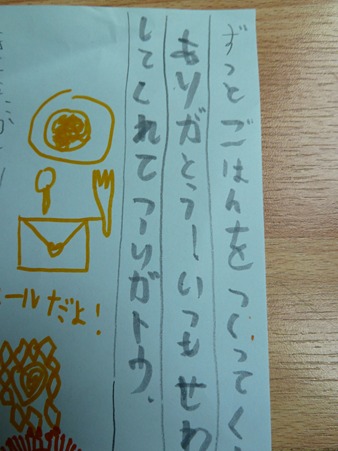 ずっとごはんをつくってく
ありがとうーいつもせわ
してくれてアリガトウ、
ールだよ！